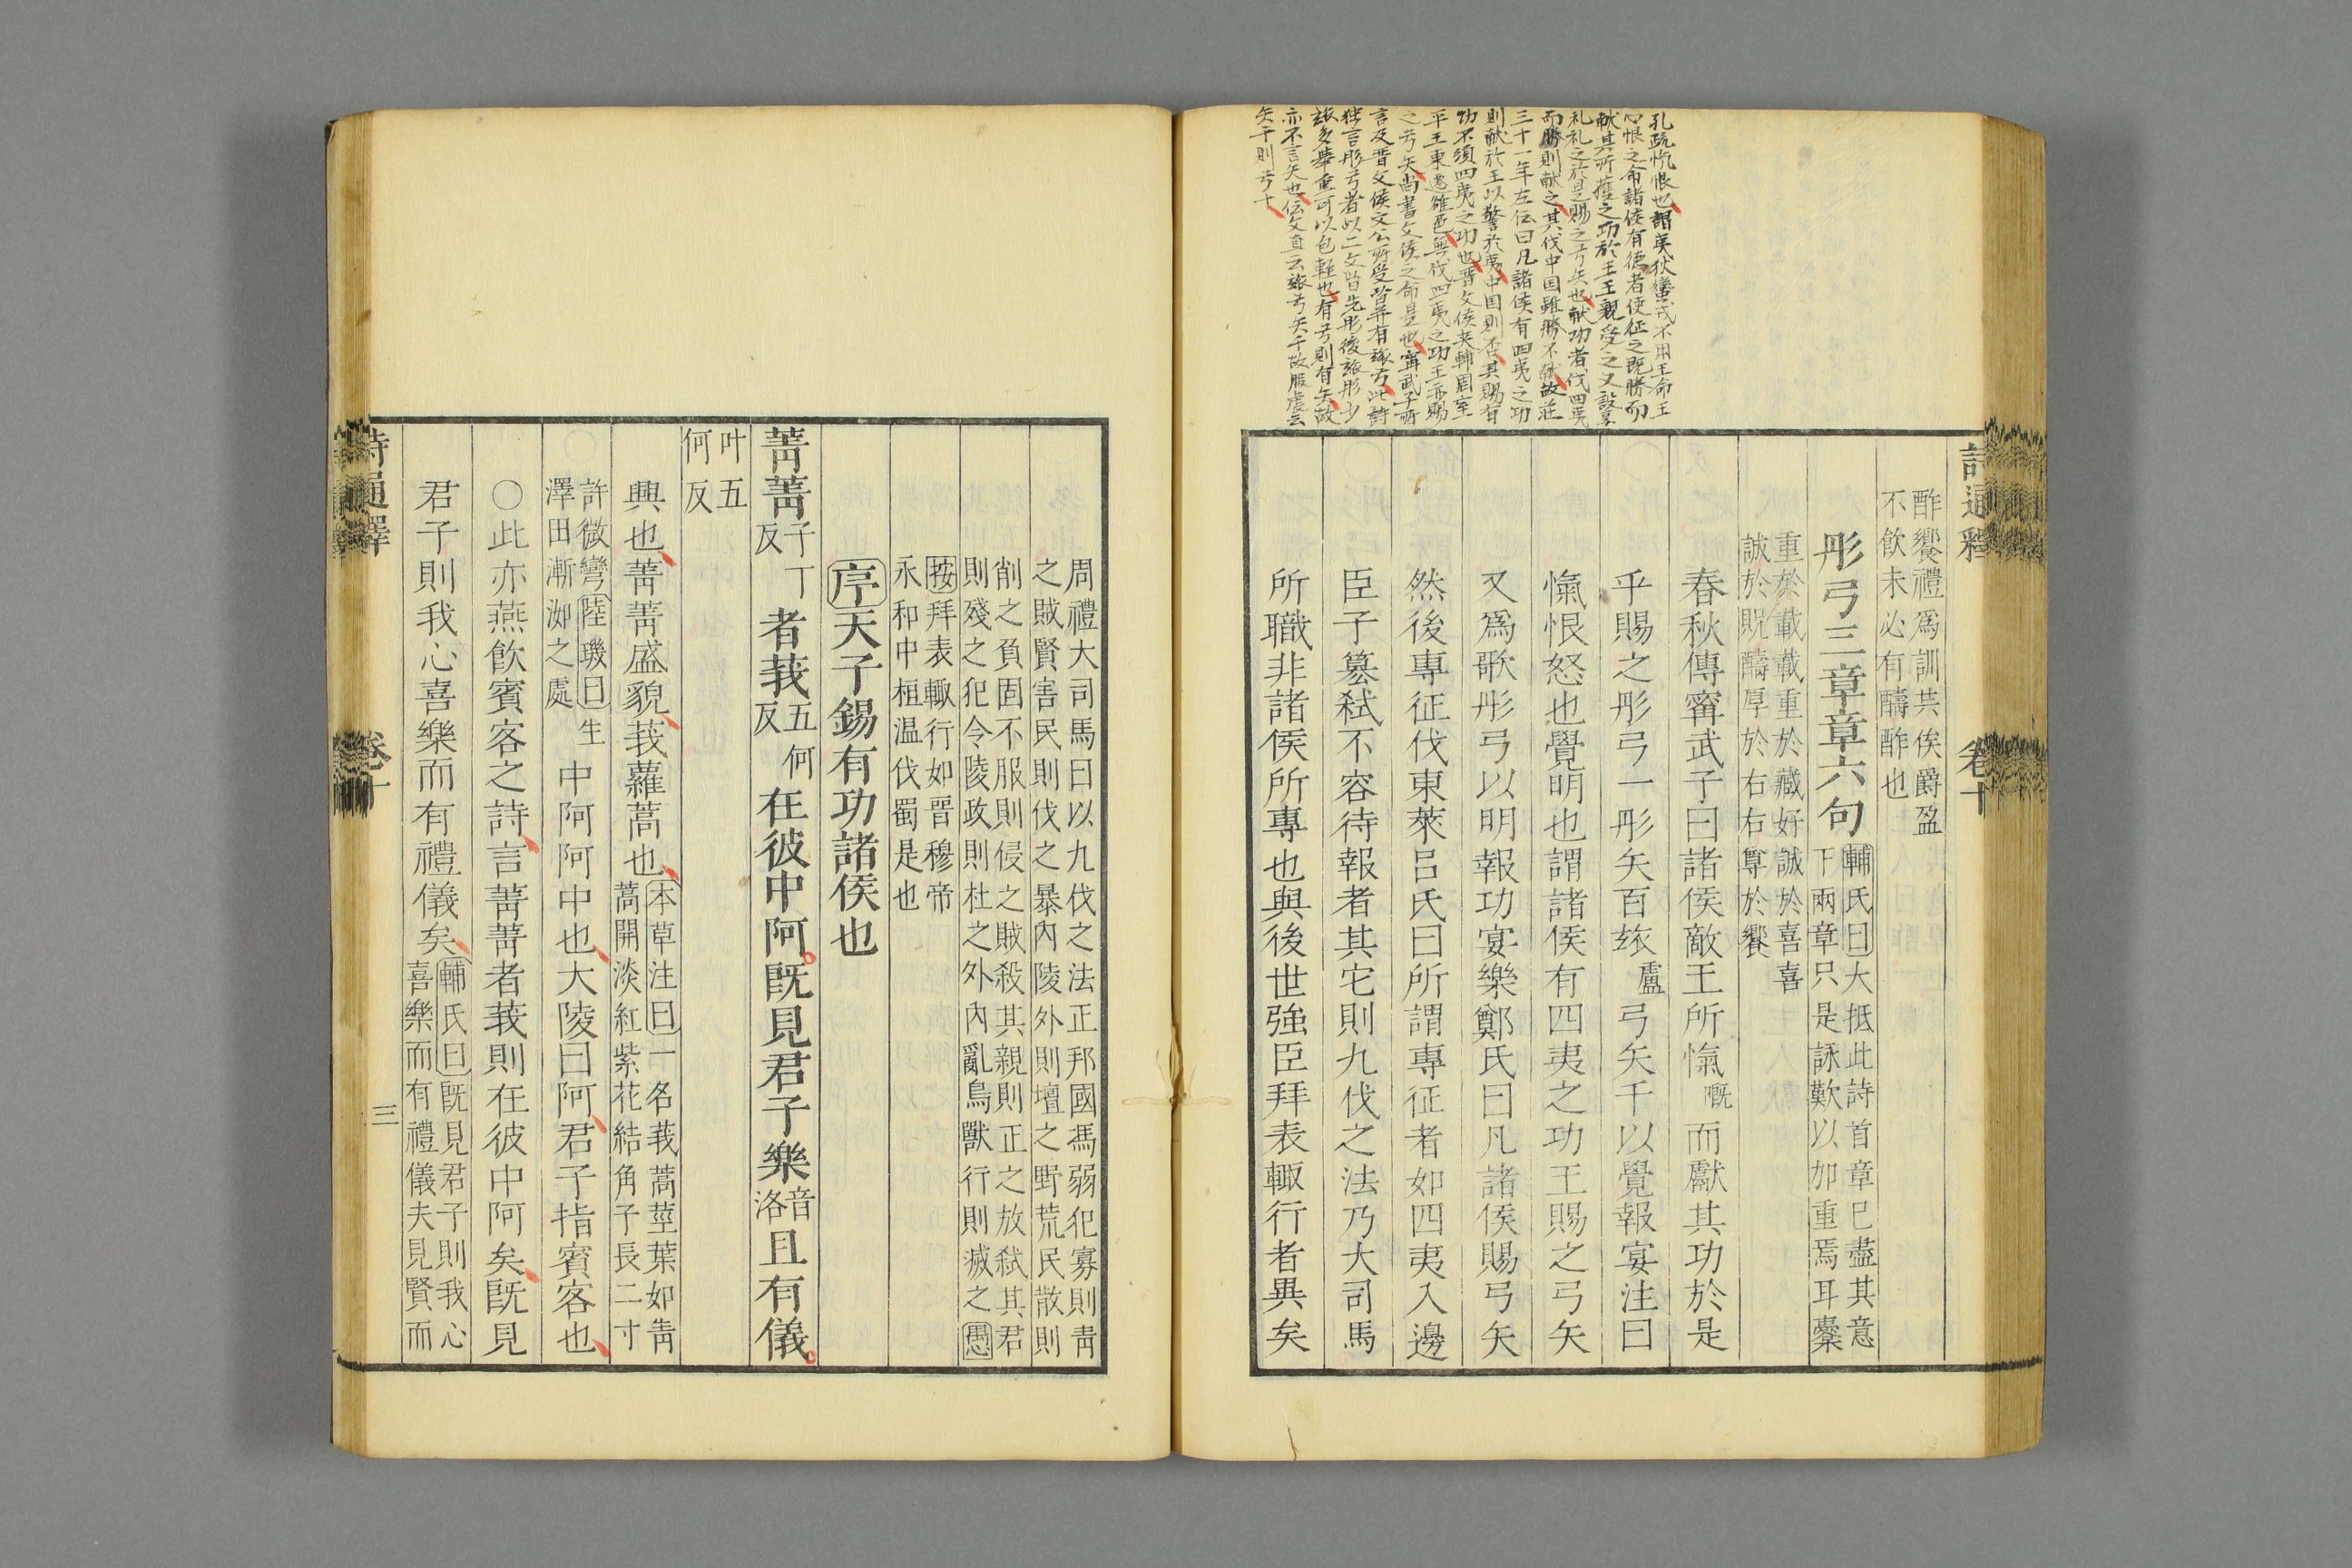 孔疏愾恨也謂夷狄蠻戎不用王命王
心恨之命諸侯有德者使征之既勝而
献其所獲之功於王王親受之又設享
礼礼之於是賜之弓矢也献功者伐四夷
而勝則献之其伐中国雖勝不献故莊
三十一年左伝曰凡諸侯有四夷之功
則献於王以警於夷中国則不其賜有
功不須四夷之功也晋文侯夹輔周室
平王東遷雒邑無伐四夷之功王亦賜
之弓矢尚書文侯之命是也甯武子所
言及晋文侯文公所受皆并有玈弓此詩
独言彤弓者以二文皆先彤後玈彤少
玈多舉重可以包軽也有弓則有矢故
亦不言矢也伝文直云玈弓矢千故服虔云
矢千則弓十
詩通釋
卷十
酢饗禮爲訓共俟爵盈
不飲未必有醻酢也
彤弓三章章六句
輔氏曰大抵此詩首章已盡其意
下兩章只是詠歎以加重焉耳櫜
重於載載重於藏好誠於喜喜
誠於貺醻厚於右右尊於饗
春秋傳甯武子曰諸侯敵王所愾慨而獻其功於是
乎賜之彤弓一彤矢百玈盧弓矢千以覺報宴注曰
愾恨怒也覺明也謂諸侯有四夷之功王賜之弓矢
又爲歌彤弓以明報功宴樂鄭氏曰凡諸侯賜弓矢
然後專征伐東萊呂氏曰所謂專征者如四夷入邊
臣子簒弑不容待報者其它則九伐之法乃大司馬
所職非諸侯所專也與後世強臣拜表輒行者異矣
周禮大司馬曰以九伐之法正邦國馮弱犯寡則眚
之賊賢害民則伐之暴內陵外則壇之野荒民散則
削之負固不服則侵之賊殺其親則正之放弑其君
則殘之犯令陵政則杜之外內亂鳥獸行則滅之愚
按拜表輒行如晉穆帝
永和中桓温伐蜀是也
序天子錫有功諸侯也
菁菁子丁反者莪五何反在彼中阿既見君子樂音洛且有儀
叶五
何反
興也菁菁盛貌莪蘿蒿也
本草注曰一名莪蒿莖葉如靑
蒿開淡紅紫花結角子長二寸
許微彎陸璣曰生
澤田漸洳之處
中阿阿中也大陵曰阿君子指賓客也
○此亦燕飮賓客之詩言菁菁者莪則在彼中阿矣既見
君子則我心喜樂而有禮儀矣
輔氏曰既見君子則我心
喜樂而有禮儀夫見賢而
詩通釋
卷十
三